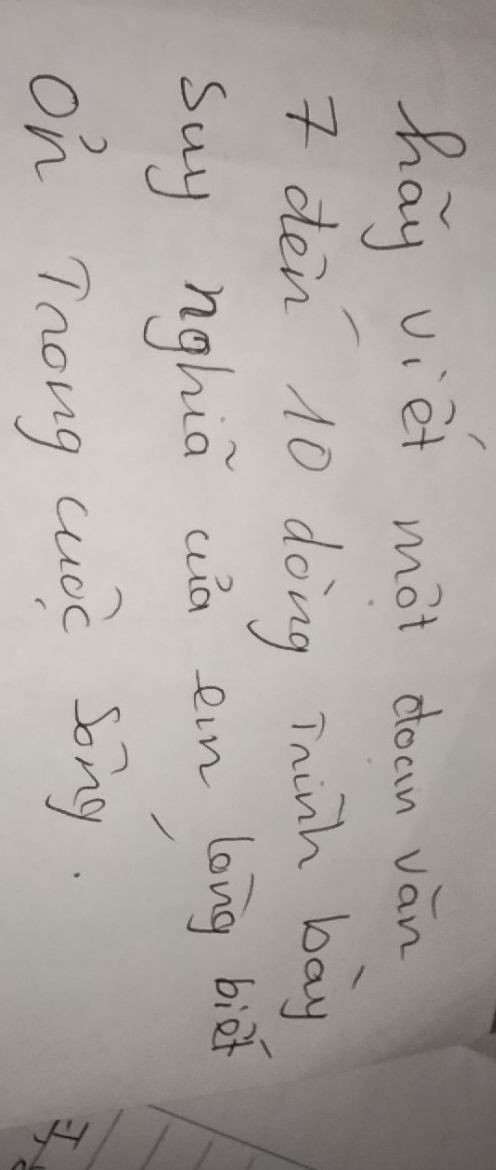 hãy viết một đoạn văn
7 đến 10 dòng Trình bày
suy nghiã của em lòng biết
ơn Trong cuộc sống.